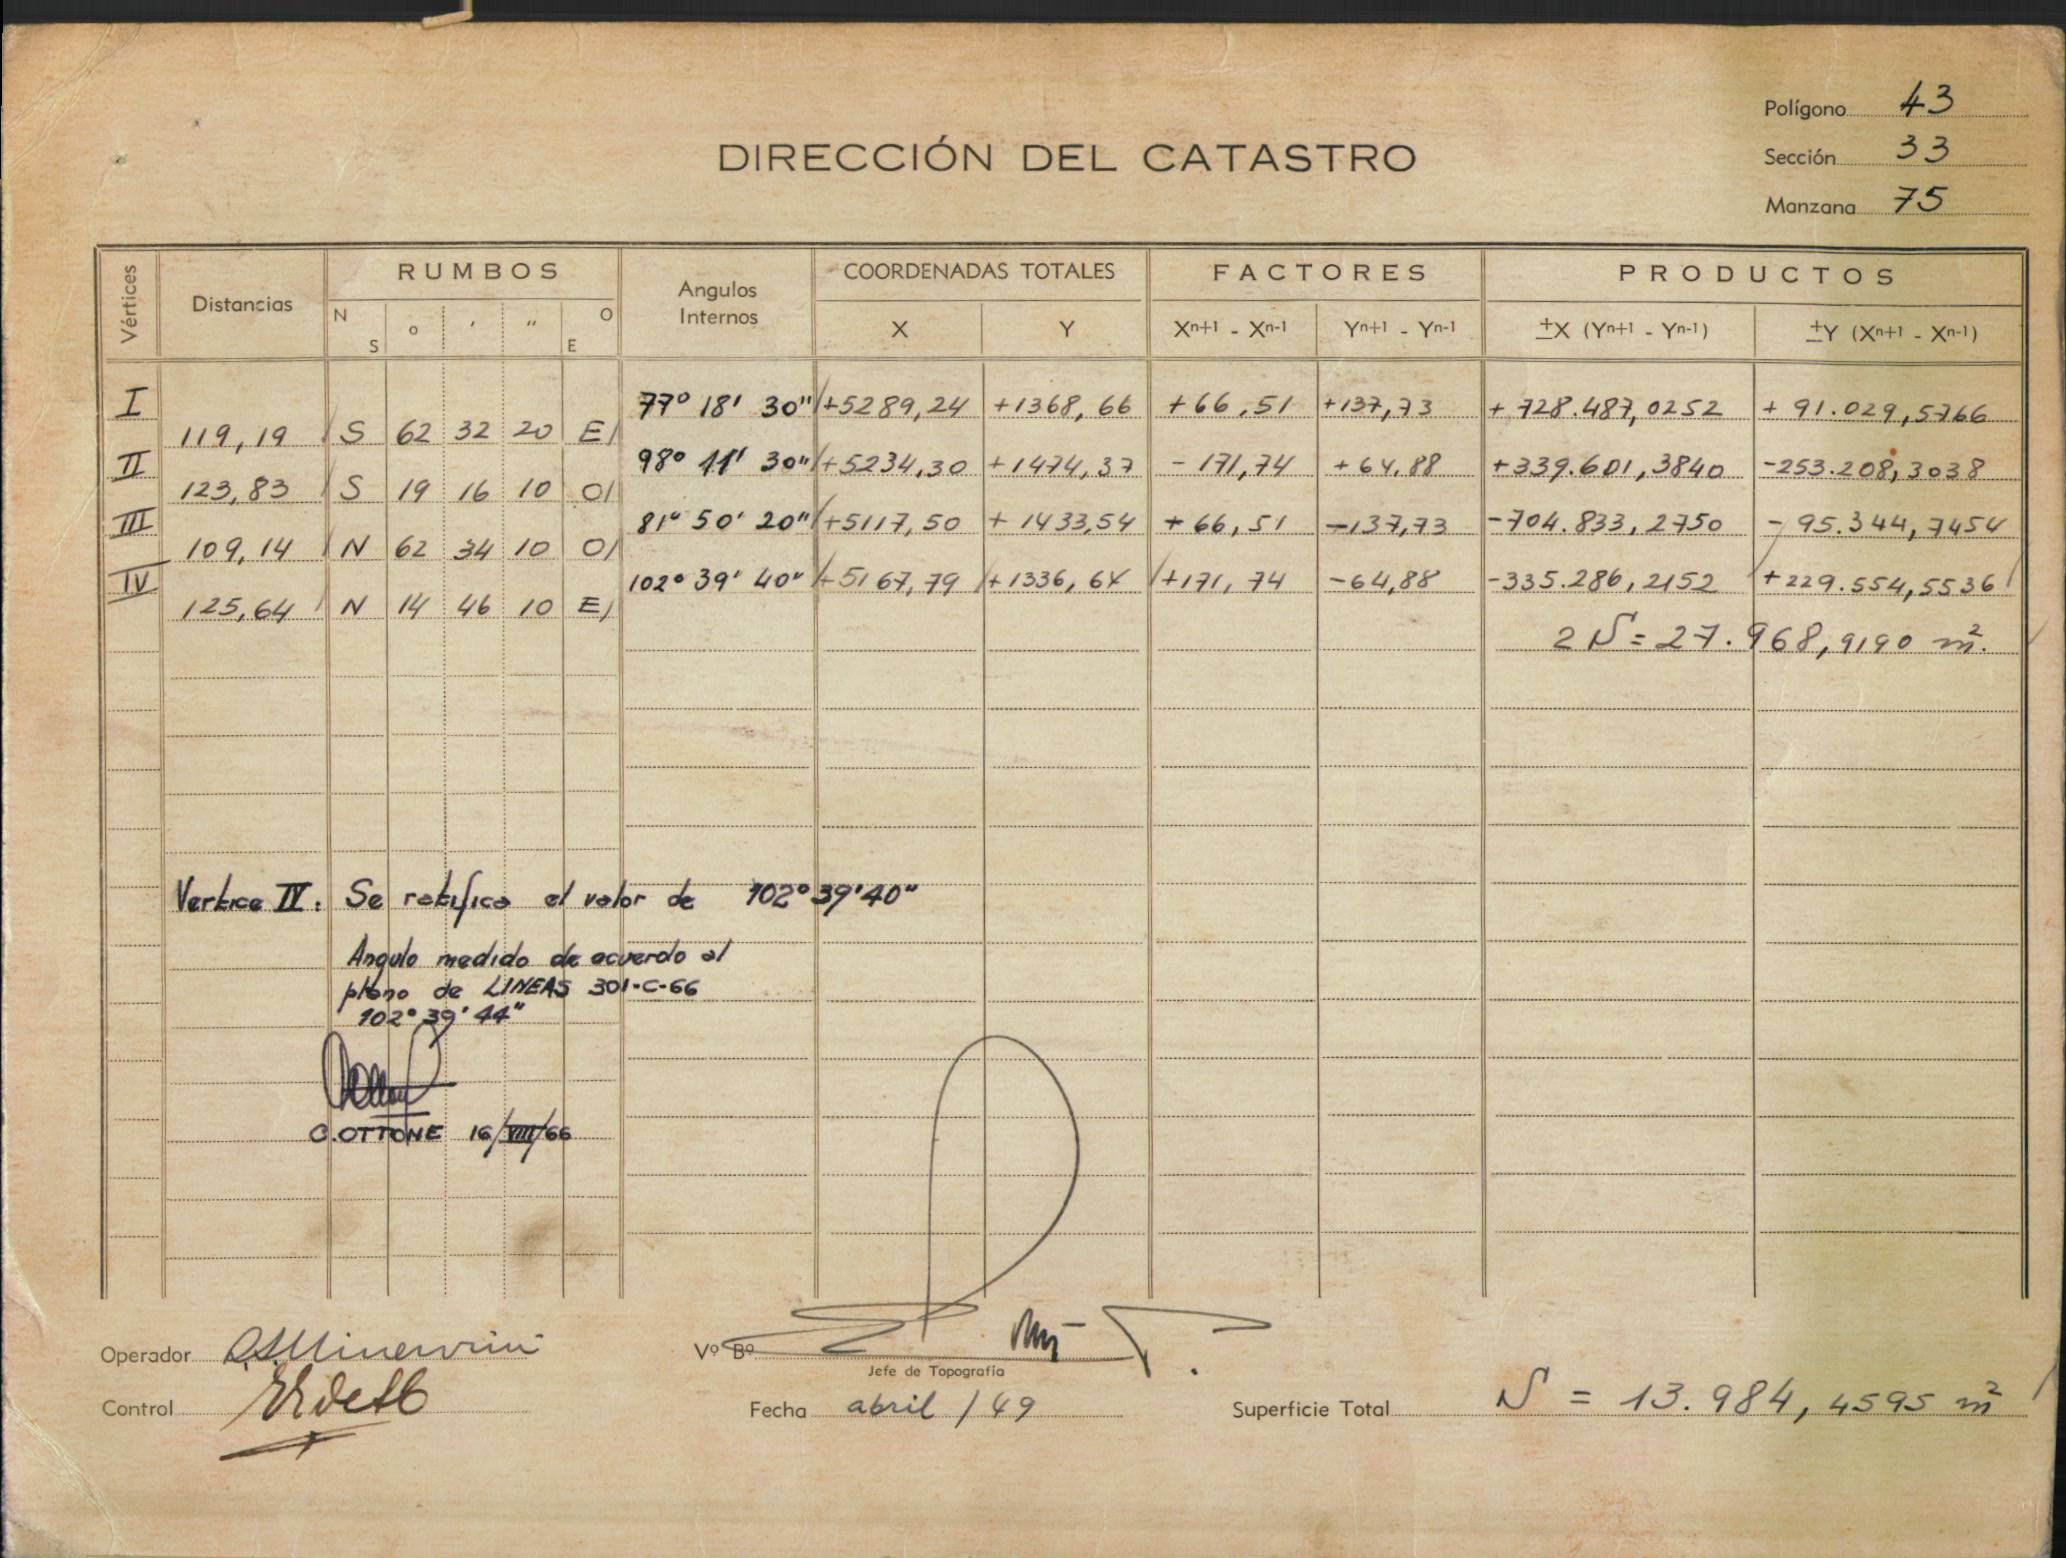 Polígono 43
DIRECCIÓN DEL CATASTRO
Sección 33
Manzana 75
Vértices Distancias RUMBOS Angulos Internos COORDENADAS TOTALES FACTORES PRODUCTOS
N S o ' " O E X Y Xn+1 - Xn-1 Yn+1 - Yn-1 ±X (Yn+1 - Yn-1) ±Y (Xn+1 - Xn-1)
I 77° 18' 30" +5289,24 +1368,66 +66,51 +137,73 +728.487,0252 +91.029,5766
119,19 S 62 32 20 E
II 98° 11' 30" +5234,30 +1474,37 -171,74 +64,88 +339.601,3840 -253.208,3038
123,83 S 19 16 10 O
III 81° 50' 20" +5117,50 +1433,54 +66,51 -137,73 -704.833,2750 -95.344,7454
109,14 N 62 34 10 O
IV 102° 39' 40" +5167,79 +1336,64 +171,74 -64,88 -335.286,2152 +229.554,5536
125,64 N 14 46 10 E
2 S = 27.968,9190 m².
Vertice IV. Se ratifica el valor de 102° 39' 40"
Angulo medido de acuerdo al
plano de LINEAS 301-C-66
102° 39' 44"
C. OTTONE 16/VIII/66
Operador Minervini Vº Bº
Jefe de Topografía
Control Fecha abril / 49 Superficie Total S = 13.984,4595 m²